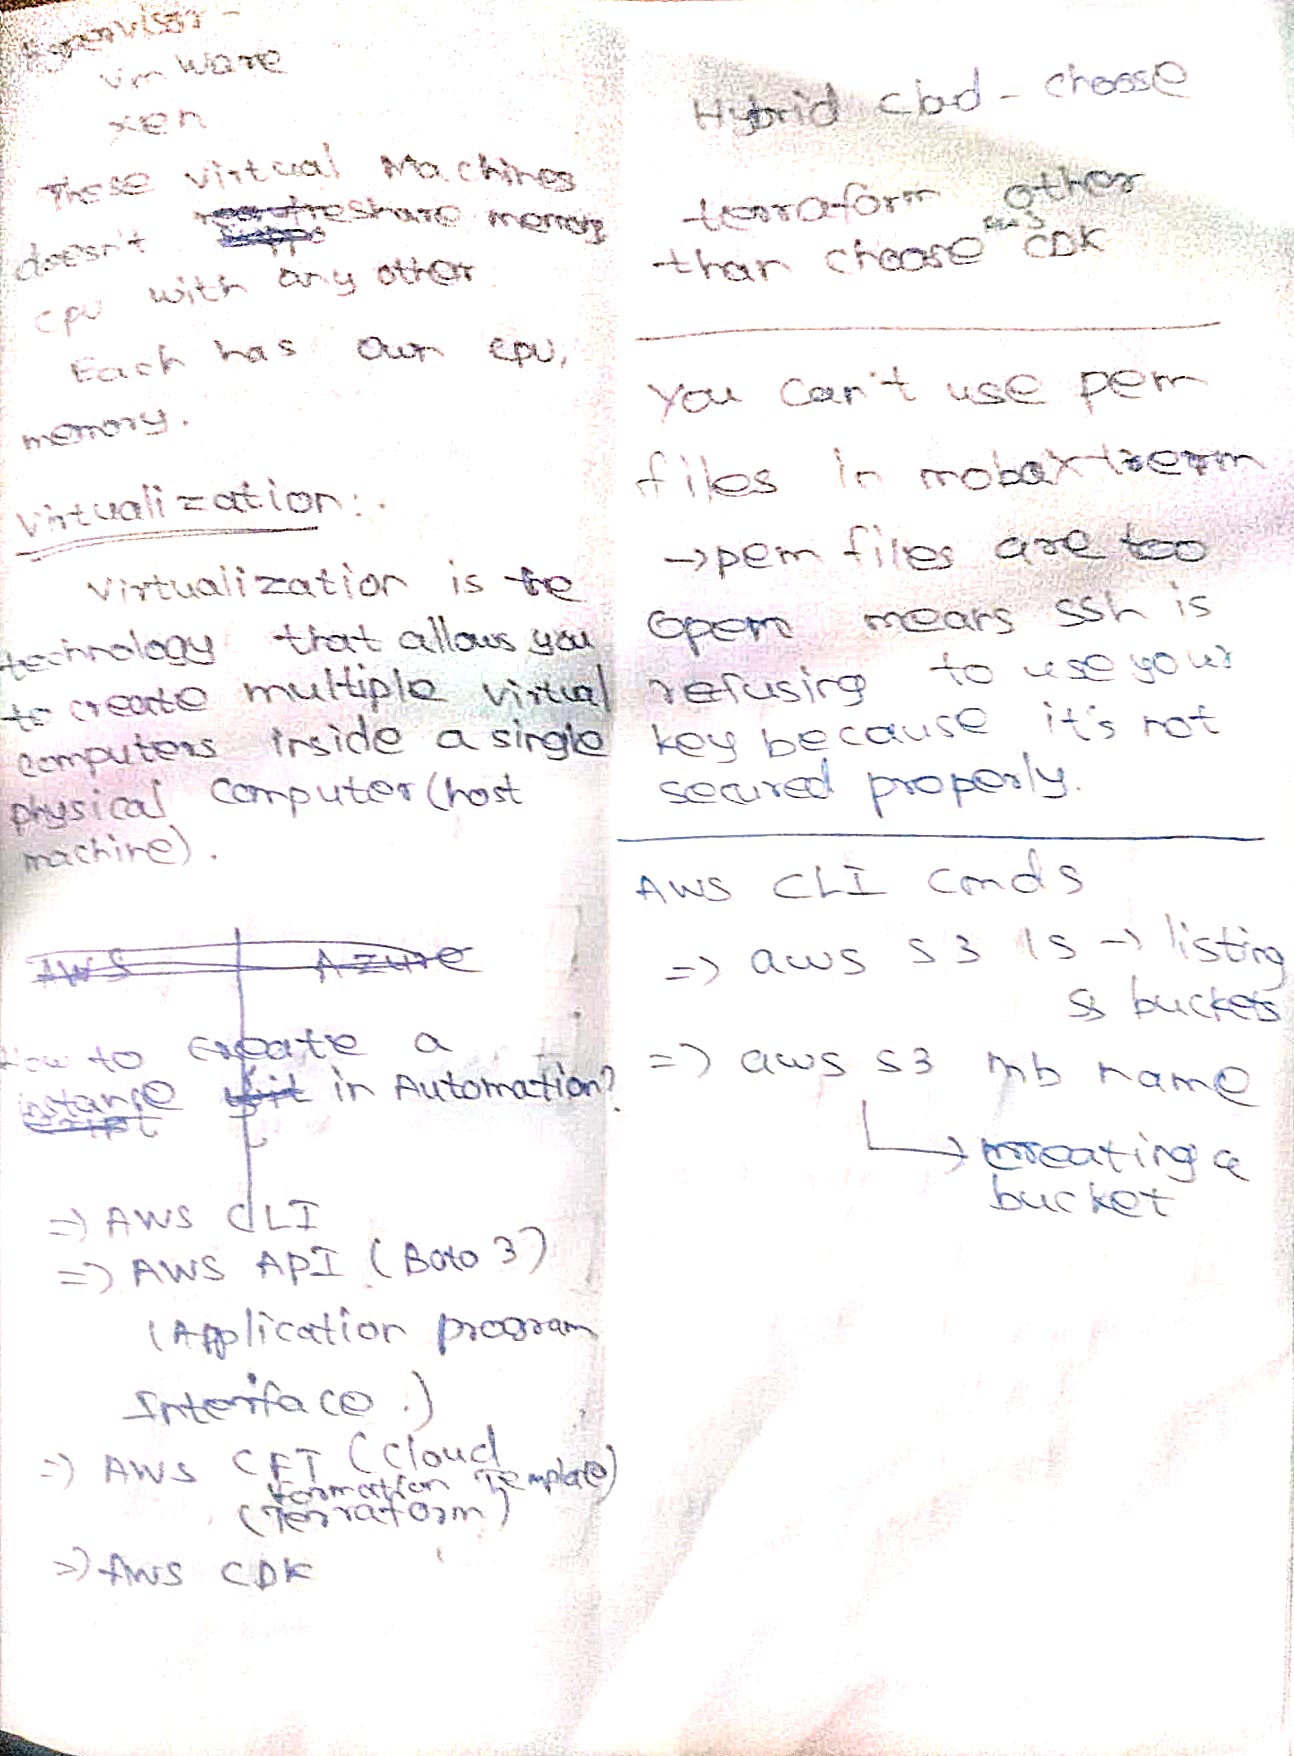 Hypervisor -
vm ware
xen
These virtual Machines
doesn't share memory
cpu with any other
Each has own cpu,
memory.
Virtualization:.
Virtualization is the
technology that allows you
to create multiple virtual
computers inside a single
physical computer (host
machine).
AWS Azure
How to create a
instance in Automation?
=> AWS CLI
=> AWS API (Boto 3)
(Application program
Interface.)
=> AWS CFT (Cloud
formation Template)
(Terraform)
=> AWS CDK
Hybrid cloud - choose
terraform other
than choose CDK
You can't use pem
files in mobaxterm
→ pem files are too
open means ssh is
refusing to use your
key because it's not
secured properly.
AWS CLI cmds
=> aws s3 ls → listing
s3 buckets
=> aws s3 mb name
→ creating a
bucket